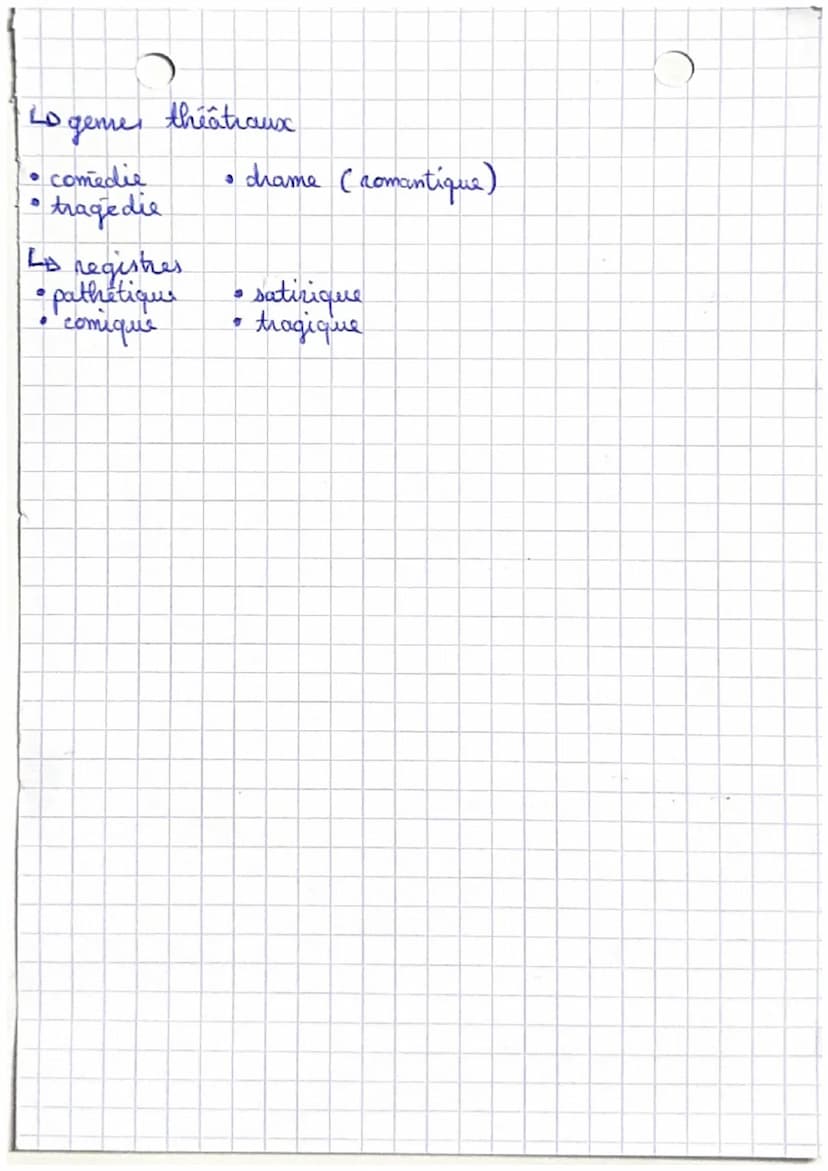 ↳ genres théâtraux
• comédie • drame (romantique)
• tragédie
↳ registres
• pathétique • satirique
• comique • tragique